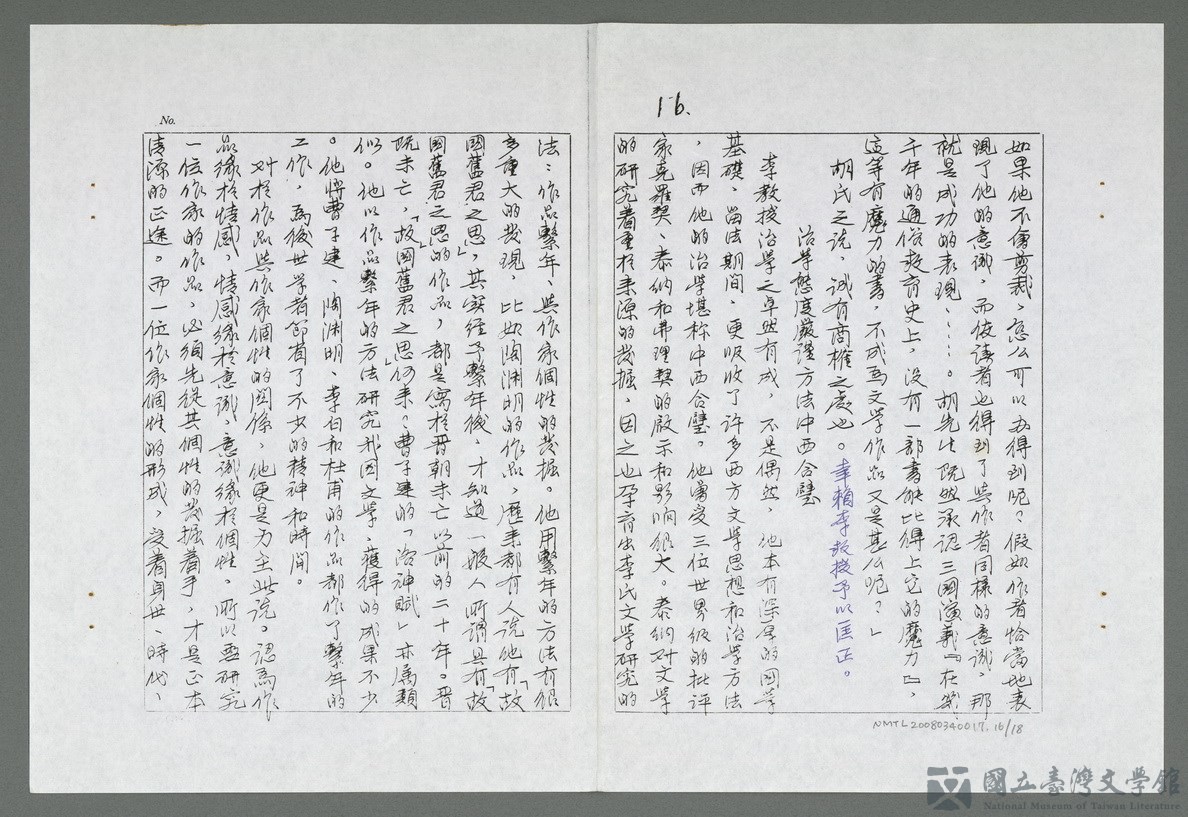 16.
如果他不會剪裁、怎么可以办得到呢？假如作者恰當地表
現了他的意識，而使读者也得到了與作者同樣的意識，那
就是成功的表現、……。胡先生既然承認三國演義『在幾
千年的通俗教育史上，没有一部書能比得上它的魔力』，
這等有魔力的書，不成爲文學作品又是甚么呢？」
胡氏之说，诚有商榷之處也。幸賴李教授予以匡正。
治學態度嚴謹方法中西合璧
李教授治學之卓然有成，不是偶然，他本有深厚的國學
基礎、留法期间，更吸收了许多西方文學思想和治學方法
，因而他的治學堪称中西合璧。他嘗受三位世界级的批评
家克羅契、泰纳和弗理契的啟示和影响很大。泰纳对文學
的研究着重於来源的发掘，因之也孕育出李氏文學研究的
No.
法：作品繫年、與作家個性的发掘。他用繫年的方法有很
多重大的发現，比如陶渊明的作品，歷来都有人说他有「故
國舊君之思」，其实经予繫年後，才知道一般人所謂具有「故
國舊君之思」的作品，都是寫於晋朝未亡以前的二十年。晋
既未亡，「故國舊君之思」何来？曹子建的「洛神賦」亦属類
似。他以作品繫年的方法研究我国文學、獲得的成果不少
。他將曹子建、陶渊明、李白和杜甫的作品都作了繫年的
工作，爲後世學者節省了不少的精神和時間。
对於作品與作家個性的関係，他更是力主此说。認爲作
品缘於情感，情感缘於意識，意識缘於個性。所以要研究
一位作家的作品，必須先從其個性的发掘着手，才是正本
清源的正途。而一位作家個性的形成，定着身世、時代、
NMTL20080340017.16/18
國立臺灣文學館
National Museum of Taiwan Literature